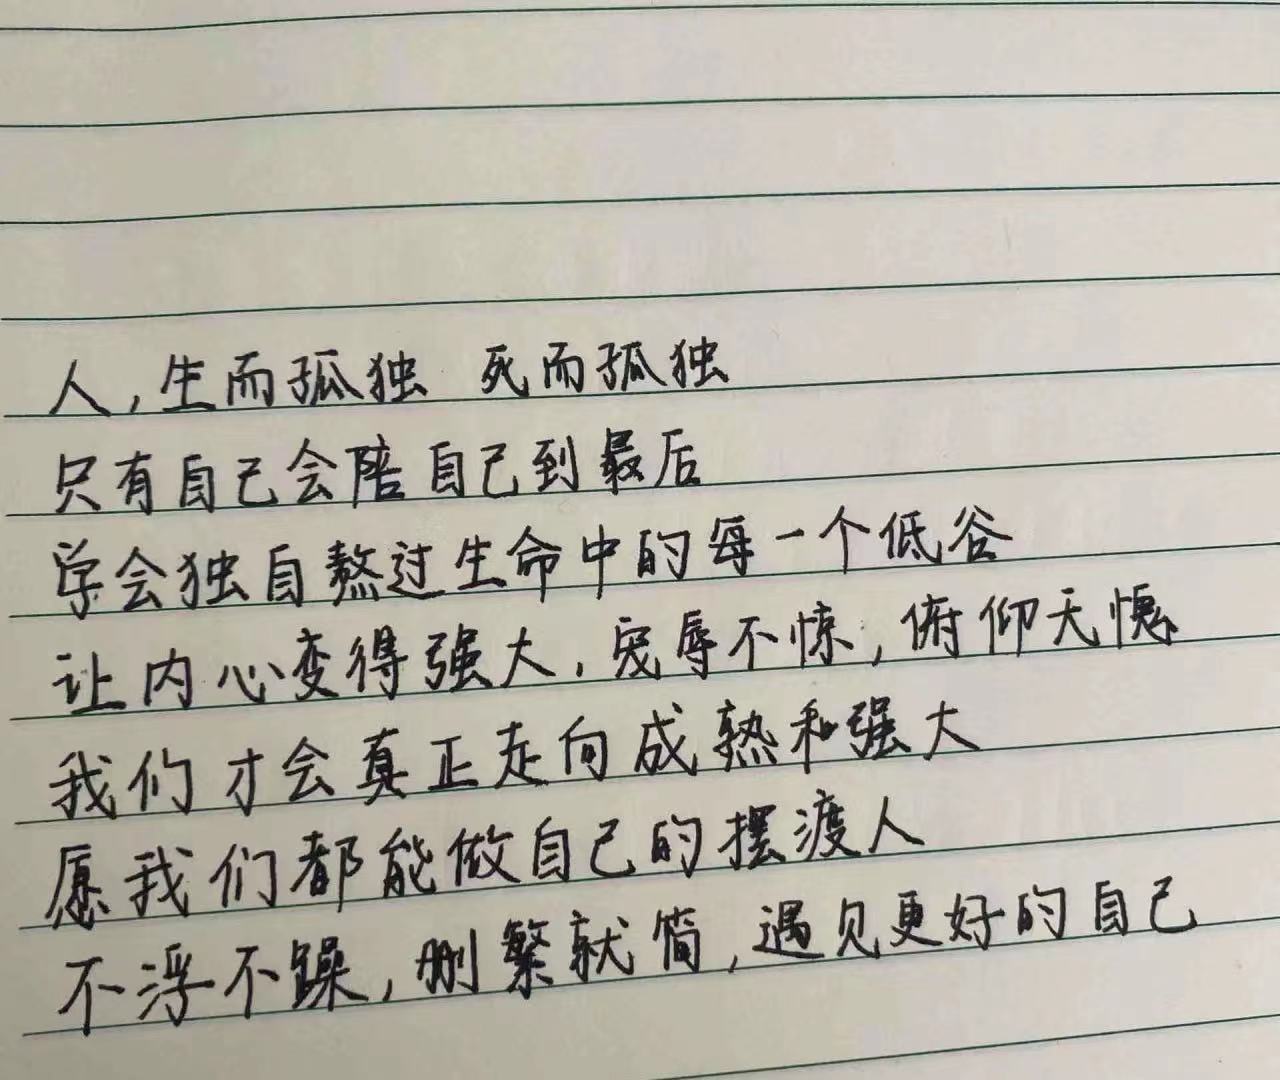 人，生而孤独 死而孤独
只有自己会陪自己到最后
学会独自熬过生命中的每一个低谷
让内心变得强大，宠辱不惊，俯仰无愧
我们才会真正走向成熟和强大
愿我们都能做自己的摆渡人
不浮不躁，删繁就简，遇见更好的自己